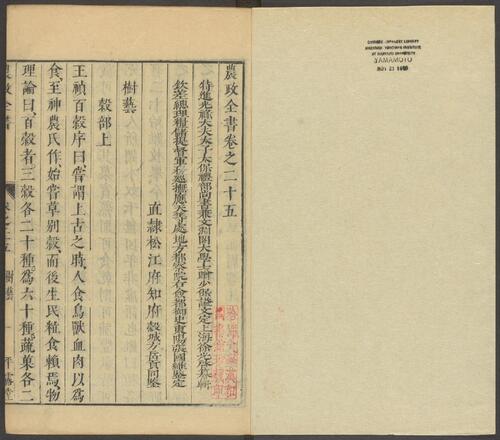 農政全書卷之二十五
特進光祿大夫太子太保禮部尚書兼文淵閣大學士贈少保諡文定上海徐光啓纂輯
欽差總理糧儲提督軍務巡撫應天等處地方都察院右僉都御史東陽張國維鑒定
直隸松江府知府穀城方岳貢同鑒
樹藝
穀部上
王禎百穀序曰嘗謂上古之時人食鳥獸血肉以爲
食至神農氏作始嘗草別穀而後生民粒食賴焉物
理論曰百穀者三穀各二十種爲六十種蔬菓各二
農政全書
卷之二十五 樹藝 一 平露堂
YAMAMOTO